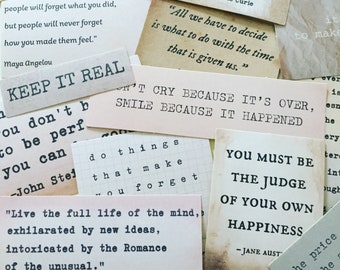 people will forget what you did,
but people will never forget
how you made them feel."
Maya Angelou
Curie
"All we have to decide
is what to do with the time
that is given us."
is
to make
KEEP IT REAL
CRY BECAUSE IT'S OVER,
SMILE BECAUSE IT HAPPENED
you don't
to be perf
you can
-John Stei
do things
that make
you forget
YOU MUST BE
THE JUDGE
OF YOUR OWN
HAPPINESS
~JANE AUST
"Live the full life of the mind,
exhilarated by new ideas,
intoxicated by the Romance
of the unusual."
he price